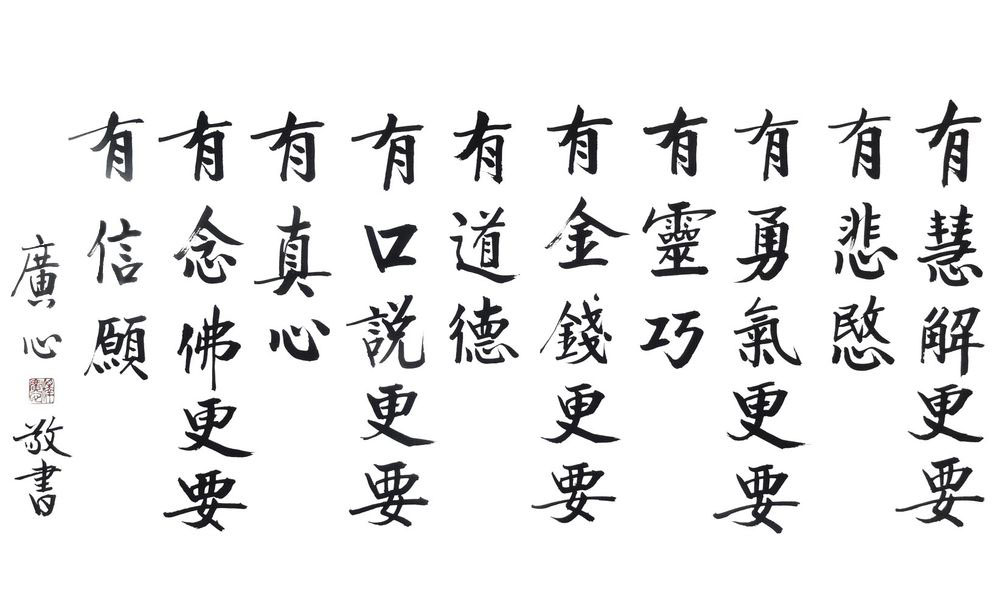 有慧解更要
有悲愍
有勇氣更要
有靈巧
有金錢更要
有道德
有口說更要
有真心
有念佛更要
有信願
廣心敬書